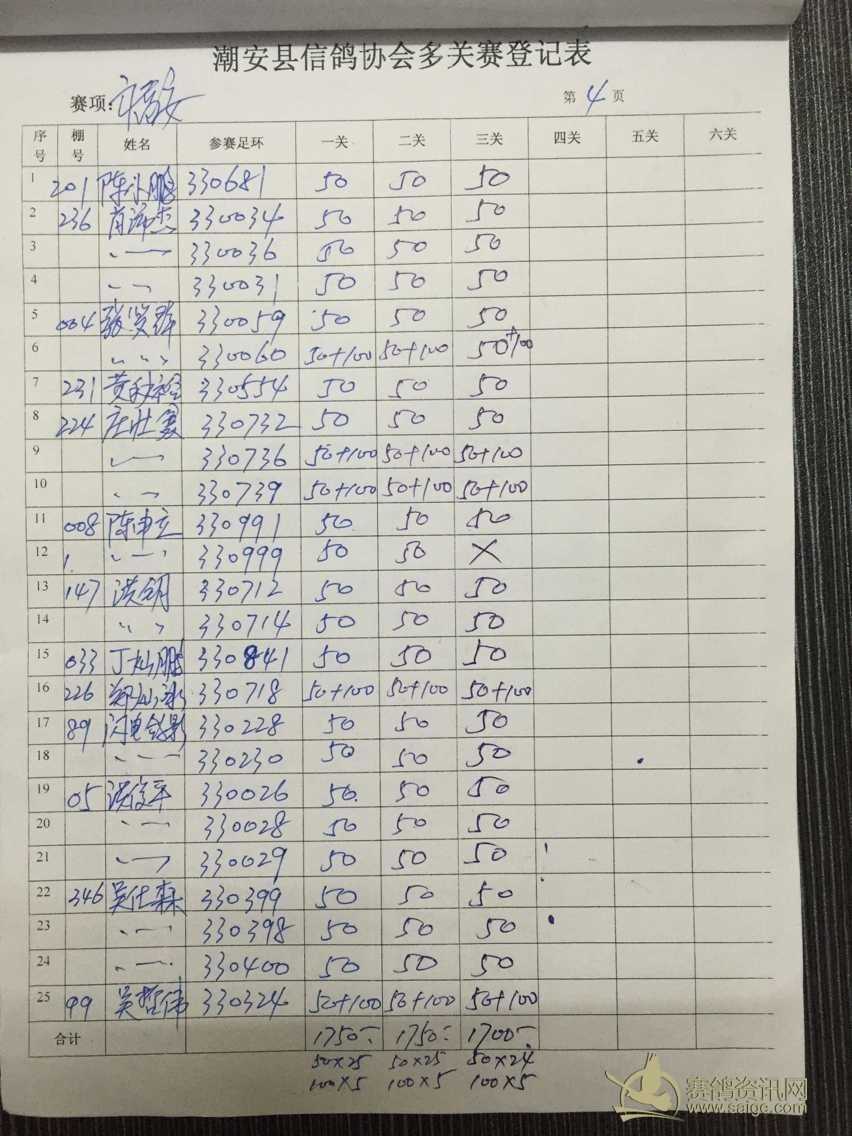 潮安县信鸽协会多关赛登记表
赛项: 第 4 页
序号 棚号 姓名 参赛足环 一关 二关 三关 四关 五关 六关
1 201 陈 鹏 330681 50 50 50
2 236 肖 杰 330034 50 50 50
3 330036 50 50 50
4 330031 50 50 50
5 004 张贤群 330059 50 50 50
6 330060 50+100 50+100 50+100
7 231 黄 330554 50 50 50
8 224 庄壮 330732 50 50 50
9 330736 50+100 50+100 50+100
10 330739 50+100 50+100 50+100
11 008 陈申立 330991 50 50 50
12 330999 50 50 ×
13 147 洪 330712 50 50 50
14 330714 50 50 50
15 033 丁灿鹏 330841 50 50 50
16 226 郑灿 330718 50+100 50+100 50+100
17 89 闪电 影 330228 50 50 50
18 330230 50 50 50
19 05 洪俊平 330026 50 50 50
20 330028 50 50 50
21 330029 50 50 50
22 346 吴仕森 330399 50 50 50
23 330398 50 50 50
24 330400 50 50 50
25 99 吴哲伟 330324 50+100 50+100 50+100
合计 1750- 1750- 1700-
50×25 50×25 50×24
100×5 100×5 100×5
赛鸽资讯网
www.saige.com